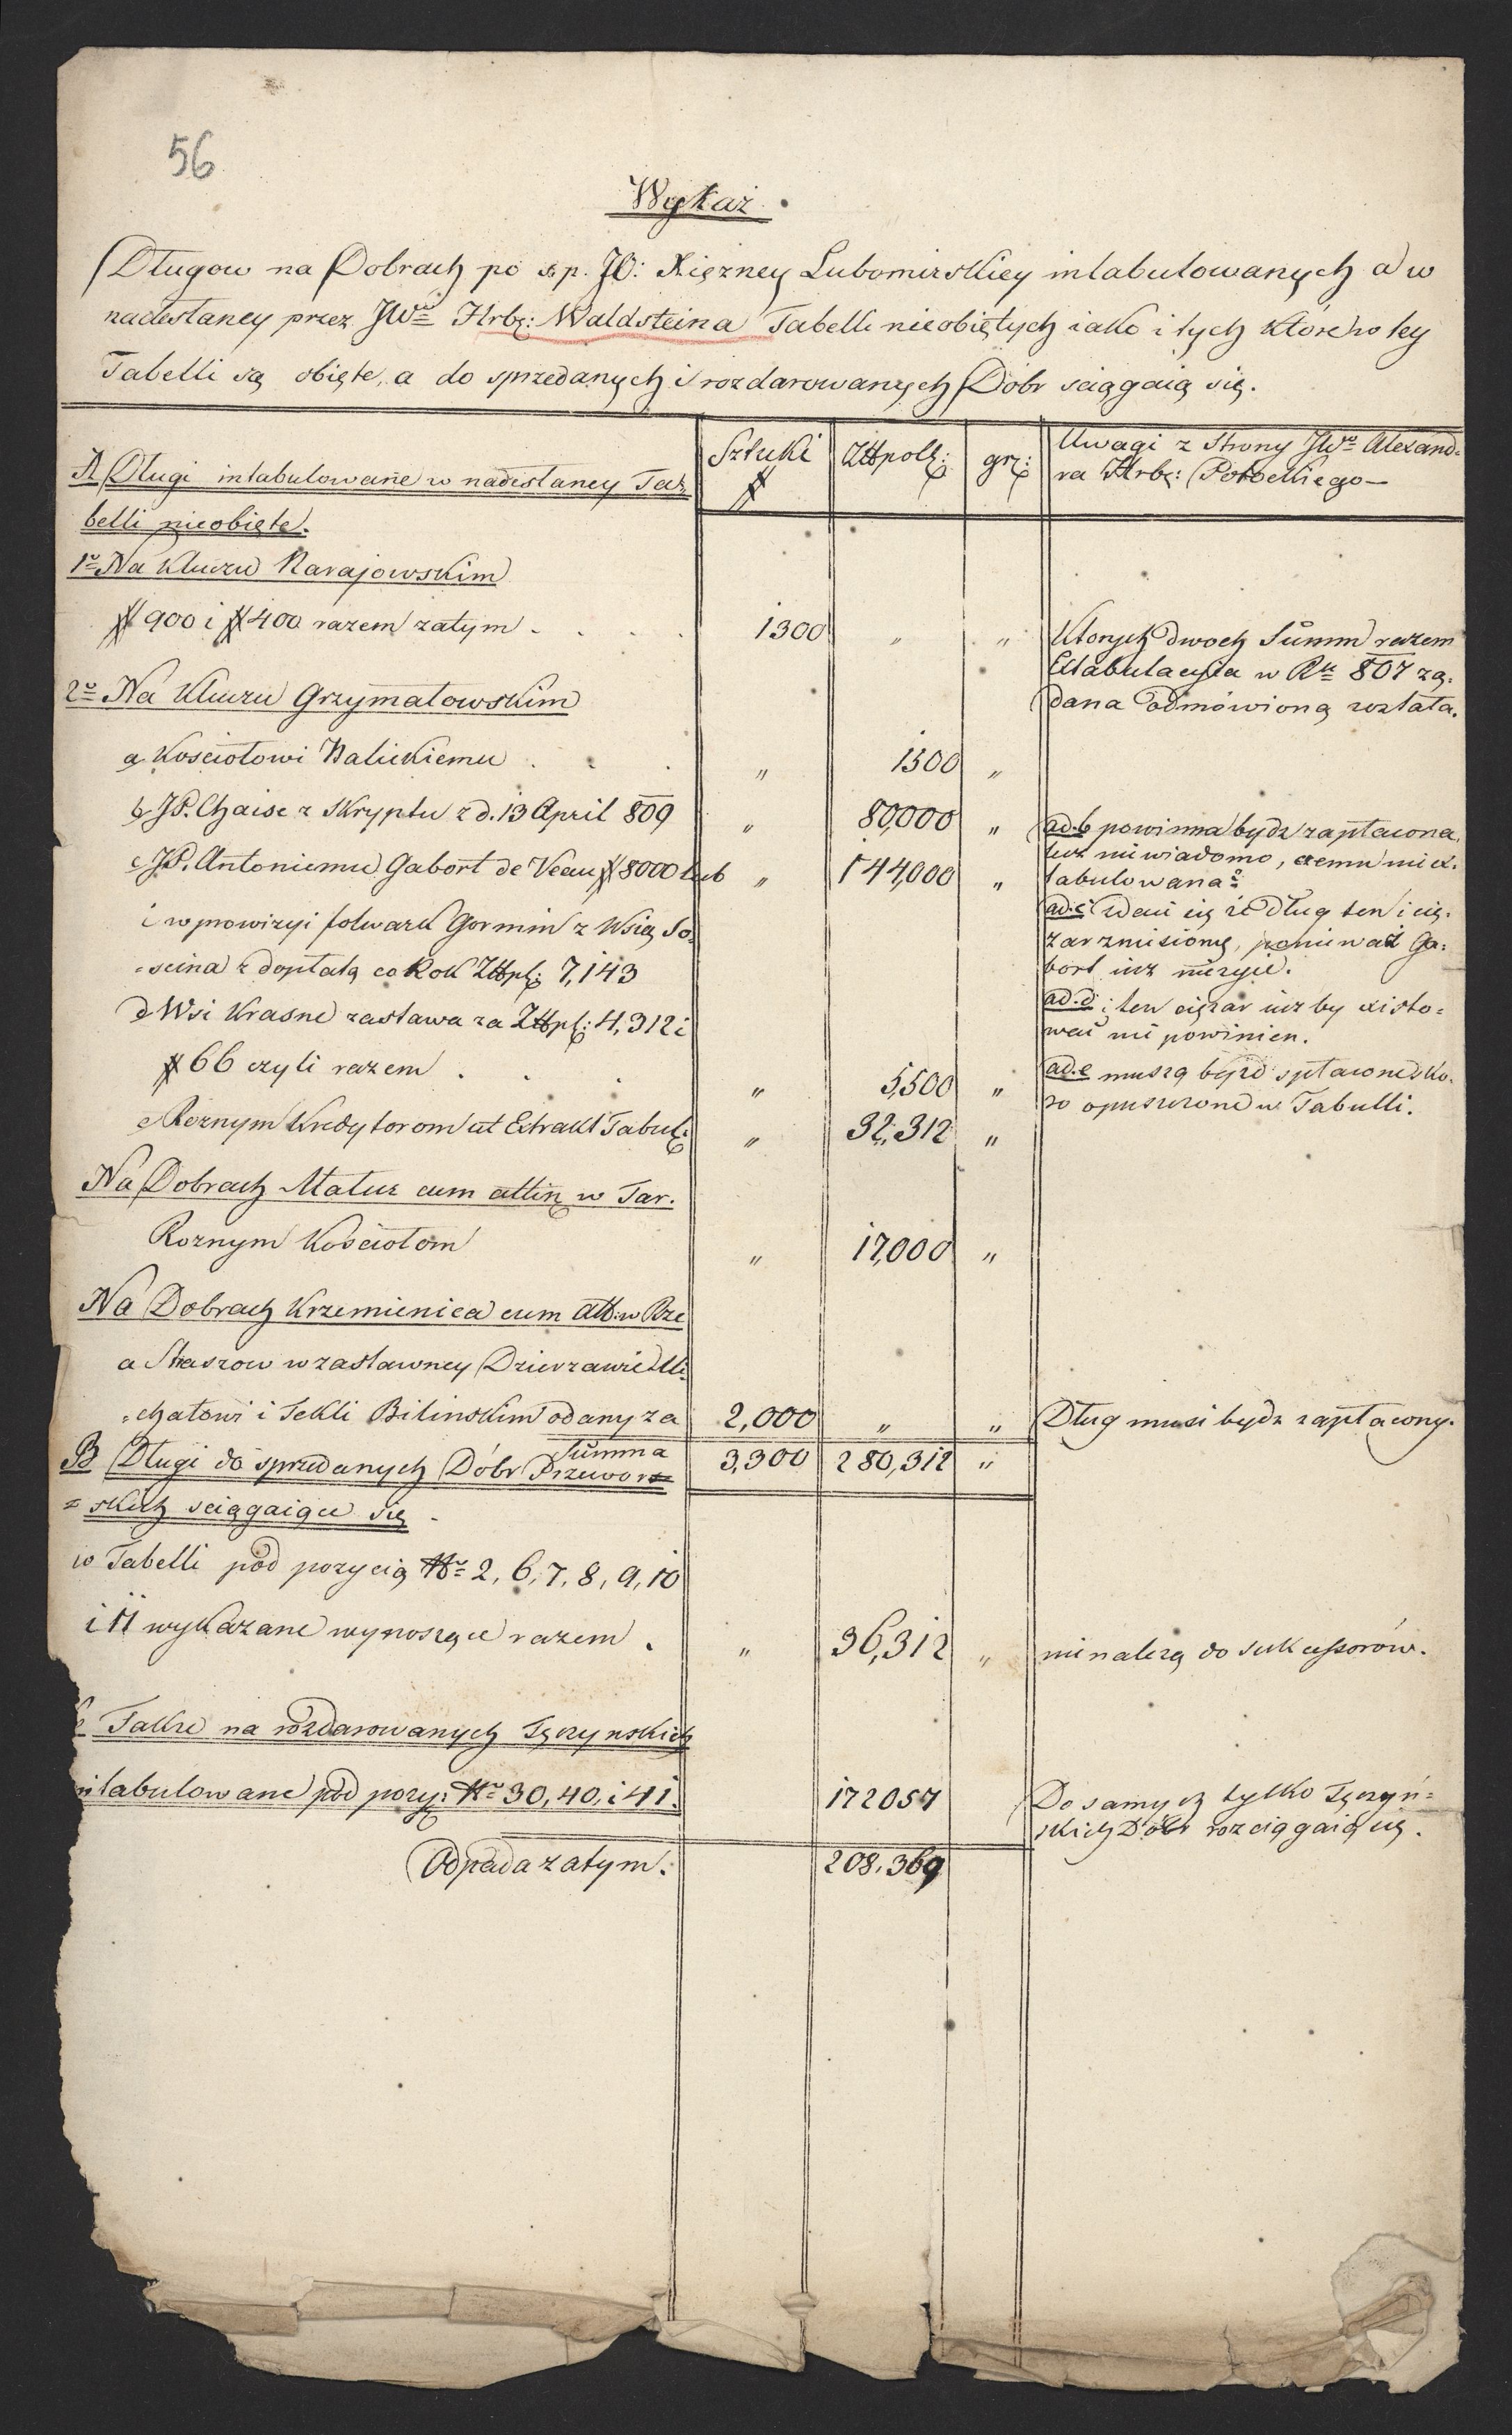 56
Wykaz.
Długow na Dobrach po s. p. JO: Xiężney Lubomirskiey intabulowanych a w
nadesłaney przez JWo Hrbę: Waldsteina Tabelli nieobiętych iako i tych które w tey
Tabelli są obięte, a do sprzedanych i rozdarowanych Dóbr sciągaią się.
A Długi intabulowane w nadesłaney Ta=
belli nieobięte.
Sztuki #
Złłpolł:
gr:
Uwagi z Strony JWo Alexand=
ra Hrbę: Potockiego—
1o Na Kluczu Narajowskim
# 900 i # 400 razem zatym . . . . 1300 " "
Ktorych dwoch Summ razem
Extabulacyia w Rku 807 żą=
dana odmówioną została.
2o Na Kluczu Grzymałowskim
a Kościołowi Halickiemu . . . " 1500 "
b JP. Chaise z Skryptu z d. 13 April 809 " 80,000 "
ad.b powinna bydz zapłacona,
lecz niewiadomo, czemu niex=
tabulowana?
c JP. Antoniemu Gabort de Veau # 8000 lub " 144,000 "
i w prowizyi folwark Gormin z Wsią So=
=scina z dopłatą co Rok Złłpł: 7,143
ad.c zdaie się że Dług ten i cię=
żar zniesiony, ponieważ Ga=
bort iuż nieżyie.
d Wsi Krasne zastawa za Złłpł: 4,312 i
# 66 czyli razem . . . " 5,500 "
ad.d: ten ciężar iuż by existo=
wać nie powinien.
e Roznym Kredytorom ut Extrakt Tabul: " 32,312 "
ad.e muszą bydź spłacone sko=
ro opuszczone w Tabulli.
Na Dobrach Matuz cum attin w Tar.
Roznym Kościołom " 17,000 "
Na Dobrach Krzemienica cum att: w Rze
a Staszow w zastawney Dzierzawie Mi=
=chałowi i Tekli Bilinskim odany za 2,000 " "
Dług musi bydz zapłacony.
Summa 3,300 280,312 "
B Długi do sprzedanych Dóbr Przewor=
=skich sciągaiące się .
w Tabelli pod pozycią No 2, 6, 7, 8, 9, 10
i 11 wykazane wynoszące razem . " 36,312 "
nienależą do sukcessorów.
Takze na rozdarowanych Tęczynskich
ntabulowane pod pozy: No 30, 40, i 41. 172057
Do samych tylko Tęczyń=
skich Dóbr rozciągaią się.
Odpada zatym: 208,369